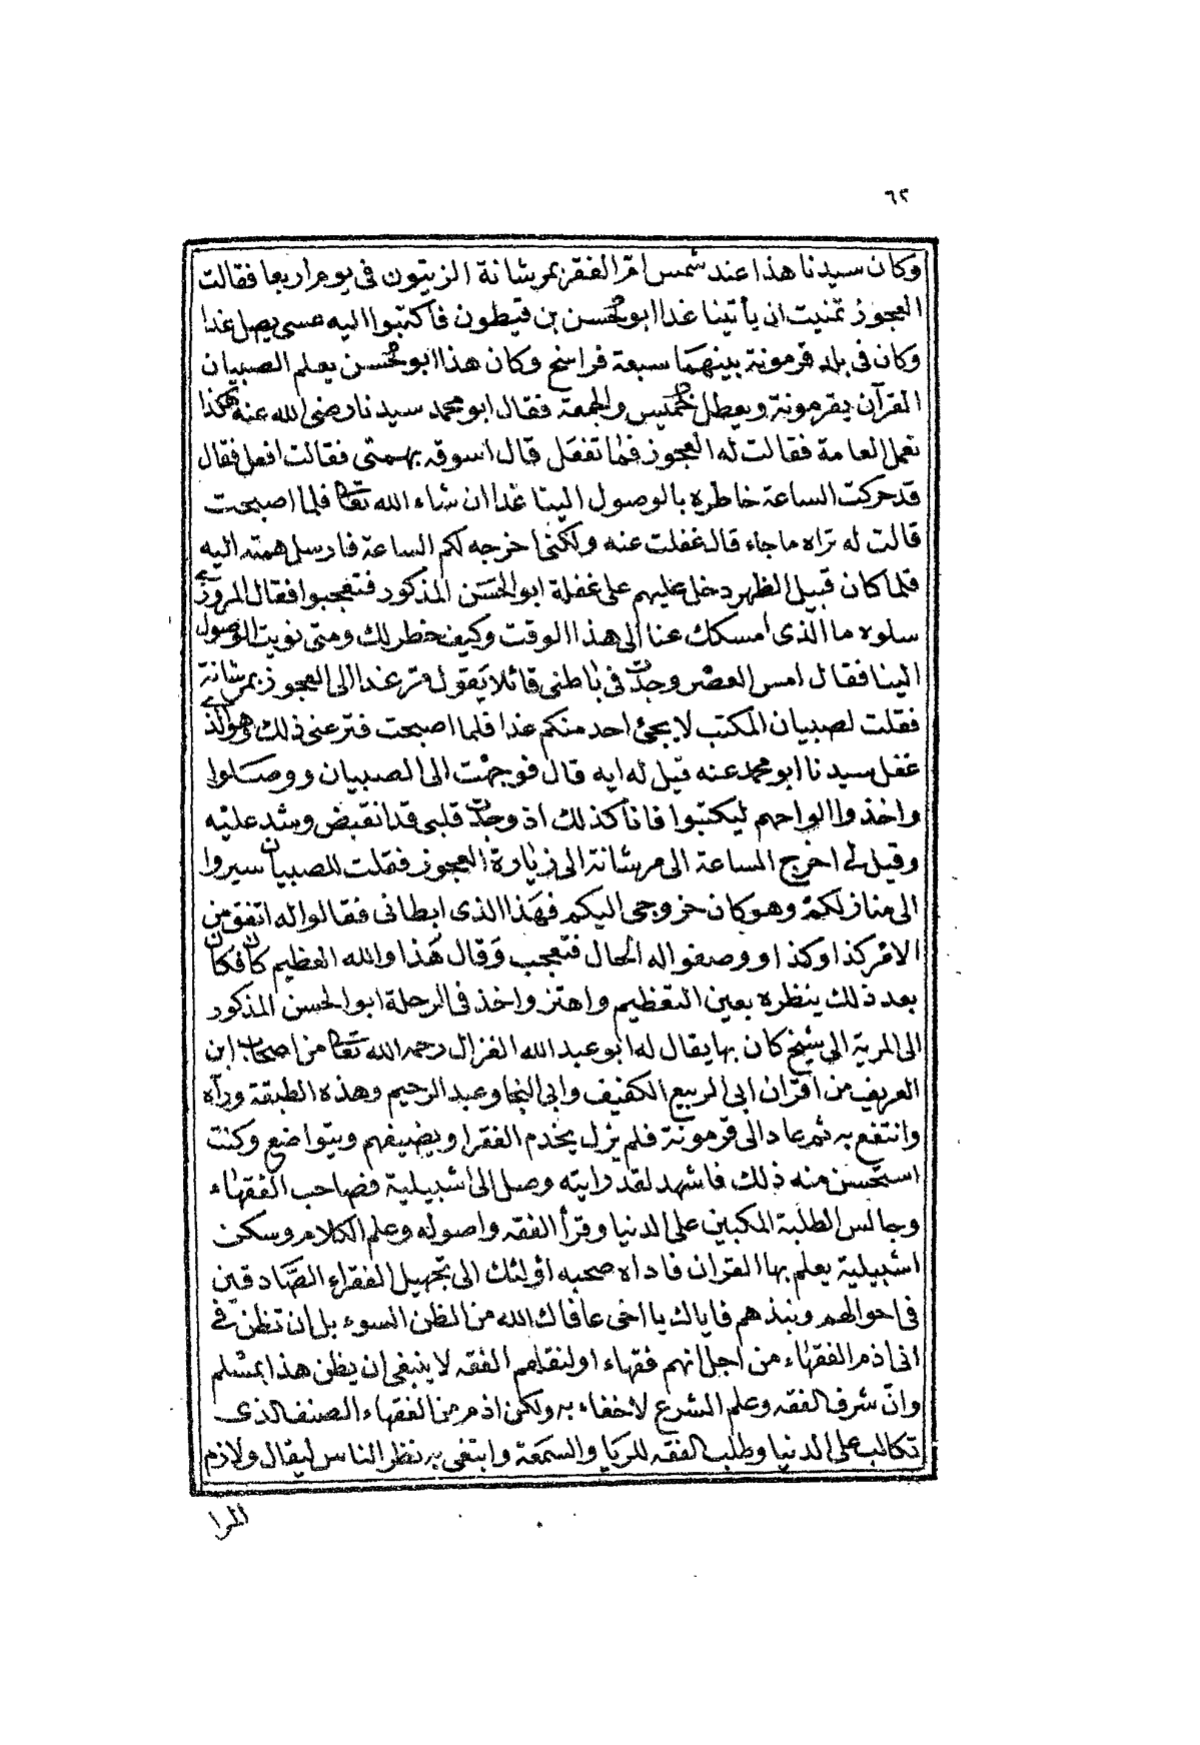 ٦٢
وكان سيدنا هذا عند شمس ام الفقر بمرشانة الزيتون فى يوم اربعا فقالت
العجوز تمنيت ان يأتينا غدا ابو الحسن بن قيطون فاكتبوا اليه عسى يصل غدا
وكان فى بلد قرمونة بينهما سبعة فراسخ وكان هذا ابو الحسن يعلم الصبيان
القرآن بقرمونة ويعطل الخميس والجمعة فقال ابو محمد سيدنا رضى الله عنه هكذا
تعمل العامة فقالت له العجوز فما تفعل قال اسوقه بهمتى فقالت افعل فقال
قد حركت الساعة خاطره بالوصول الينا غدا ان شاء الله تعالى فلما اصبحت
قالت له نراه ما جاء قال غفلت عنه ولكنى اخرجه لكم الساعة فارسل همته اليه
فلما كان قبيل الظهر دخل عليهم على غفلة ابو الحسن المذكور فتعجبوا فقال المروزى
سلوه ما الذى امسكك عنا الى هذا الوقت وكيف خطر لك ومتى نويت الوصول
الينا فقال امس العصر وجدت فى باطنى قائلا يقول مر غدا الى العجوز بمرشانة
فقلت لصبيان المكتب لا يجئ احد منكم غدا فلما اصبحت فتر عنى ذلك وهو الذى
غفل سيدنا ابو محمد عنه قيل له ايه قال فوجهت الى الصبيان ووصلوا
واخذوا الواحهم ليكتبوا فانا كذلك اذ وجدت قلبى قد انقبض وشد عليه
وقيل لى اخرج الساعة الى مرشانة الى زيارة العجوز فقلت للصبيان سيروا
الى منازلكم وهو كان خروجى اليكم فهذا الذى ابطانى فقالوا له اتفق من
الامر كذا وكذا ووصفوا له الحال فتعجب وقال هذا والله العظيم كان فكان
بعد ذلك ينظره بعين التعظيم واهتز واخذ فى الرحلة ابو الحسن المذكور
الى المرية الى شيخ كان بها يقال له ابو عبد الله الغزال رحمه الله تعالى من اصحاب ابن
العريف من اقران ابى الربيع الكفيف وابى النجا وعبد الرحيم وهذه الطبقة ورآه
وانتفع به ثم عاد الى قرمونة فلم يزل يخدم الفقرا ويضيفهم ويتواضع وكنت
استحسن منه ذلك فاشهد لقد رايته وصل الى اشبيلية فصاحب الفقهاء
وجالس الطلبة المكبين على الدنيا وقرأ الفقه واصوله وعلم الكلام وسكن
اشبيلية يعلم بها القران فاداه صحبه اولئك الى تجهيل الفقراء الصادقين
فى احوالهم ونبذهم فاياك يا اخى عافاك الله من الظن السوء بل ان تظن فى
انى اذم الفقهاء من اجل انهم فقهاء او لنقلهم الفقه لا ينبغى ان يظن هذا بمسلم
وان شرف الفقه وعلم الشرع لا خفاء به ولكن اذم من الفقهاء الصنف الذى
تكالب على الدنيا وطلب الفقه للريا والسمعة وابتغى به نظر الناس ليقال ولازم
المرا